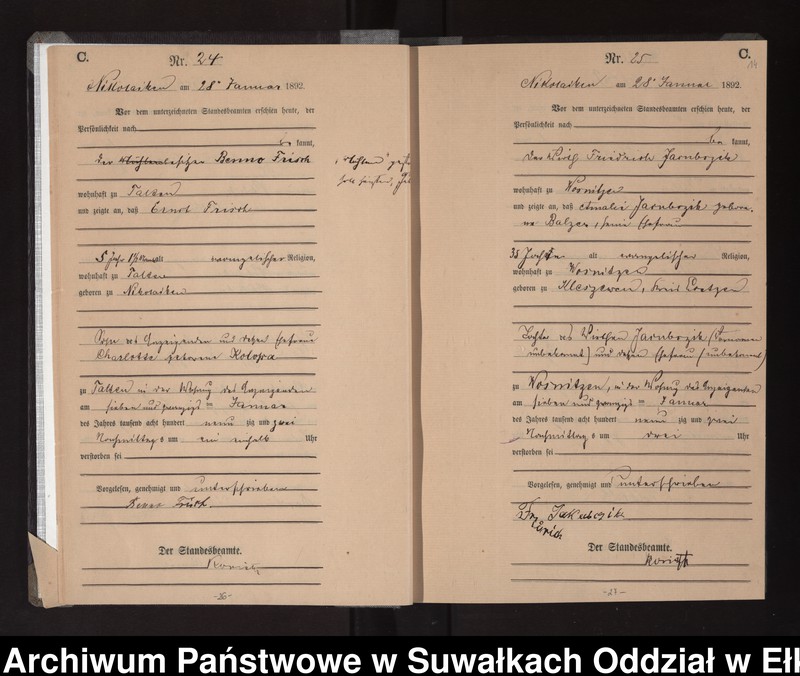 C.
Nr. 24
Nikolaiken am 28. Januar 1892.
Vor dem unterzeichneten Standesbeamten erschien heute, der
Persönlichkeit nach
be kannt,
der Benno Frisch
wohnhaft zu Talten
und zeigte an, daß Ernst Frisch
5 Jahr alt evangelischer Religion,
wohnhaft zu Talten
geboren zu Nikolaiken
Sohn des Anzeigenden und dessen Ehefrau
Charlotte geborene Kolossa
zu Talten in der Wohnung des Anzeigenden
am sieben und zwanzigsten Januar
des Jahres tausend acht hundert neun zig und zwei
Nachmittag s um ein einhalb Uhr
verstorben sei
Vorgelesen, genehmigt und unterschrieben
Benno Frisch
Der Standesbeamte.
-26-
C.
Nr. 25
Nikolaiken am 28. Januar 1892.
Vor dem unterzeichneten Standesbeamten erschien heute, der
Persönlichkeit nach
be kannt,
der Wirth Friedrich
wohnhaft zu Wosnitzen
und zeigte an, daß Amalie
ne Balzer, seine Ehefrau
35 Jahre alt evangelischer Religion,
wohnhaft zu Wosnitzen
geboren zu Kleszewen, Kreis Loetzen
Tochter des Wirthen (Vornamen
unbekannt) und dessen Ehefrau (unbekannt)
zu Wosnitzen, in der Wohnung des Anzeigenden
am sieben und zwanzigsten Januar
des Jahres tausend acht hundert neun zig und zwei
Nachmittag s um drei Uhr
verstorben sei
Vorgelesen, genehmigt und unterschrieben
Der Standesbeamte.
-27-
Archiwum Państwowe w Suwałkach Oddział w Ełk